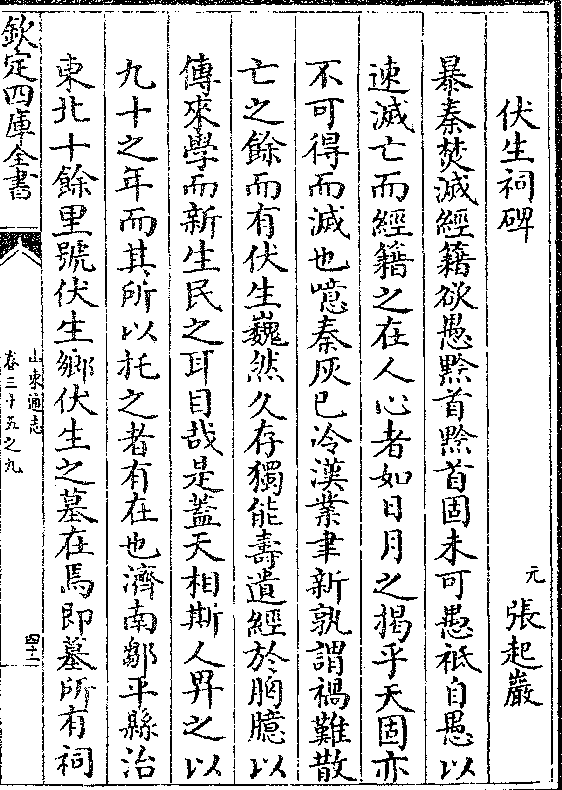 伏生祠碑
元 張起巖
暴秦焚滅經籍欲愚黔首黔首固未可愚祇自愚以
速滅亡而經籍之在人心者如日月之揭乎天固亦
不可得而滅也噫秦灰已冷漢業聿新孰謂禍難散
亡之餘而有伏生巍然久存獨能壽遺經於胸臆以
傳來學而新生民之耳目哉是蓋天相斯人畀之以
九十之年而其所以托之者有在也濟南鄒平縣治
東北十餘里號伏生鄉伏生之墓在焉即墓所有祠
欽定四庫全書
山東通志
卷三十五之九
四十二